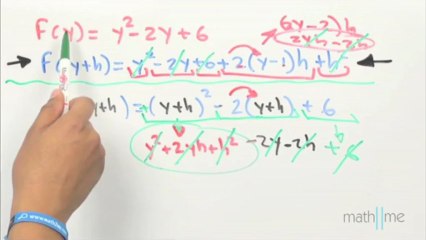 F(y) = y² - 2y + 6
(2y-2)h
2yh - 2h
F(y+h) = y² - 2y + 6 + 2(y-1)h + h²
y+h) = (y+h)² - 2(y+h) + 6
y² + 2yh + h² - 2y - 2h + 6
math||me